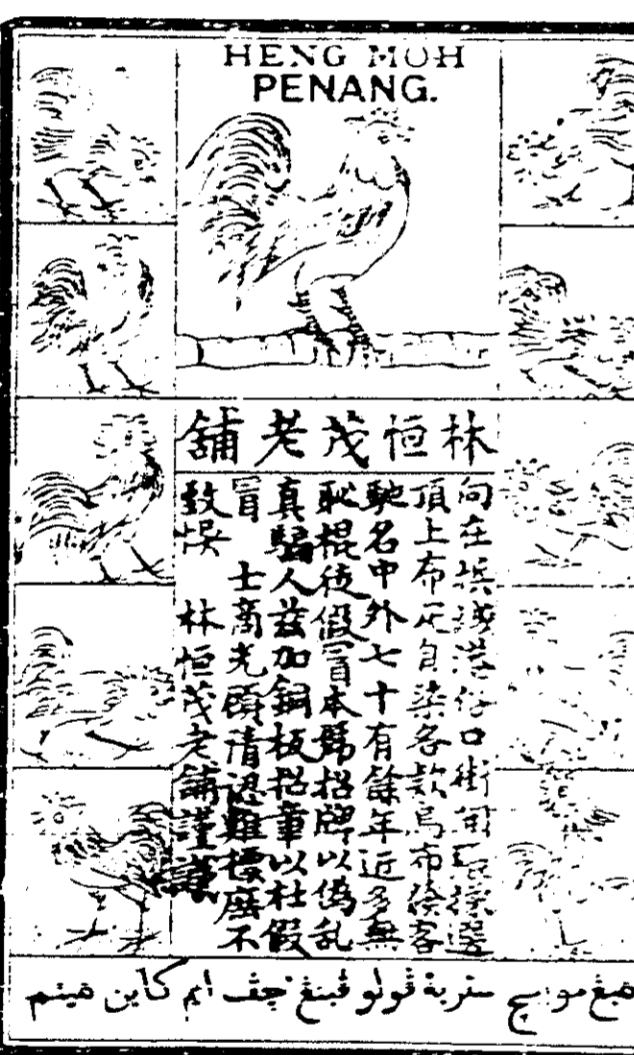 HENG MOH
PENANG.
林恒茂老舖
向在檳城港仔口街
頂上布疋自染各款烏布發客
馳名中外七十有餘年近多無
恥棍徒假冒本號招牌以偽乱
真騙人茲加銅板招章以杜假
冒 士商光顧請認雞標庶不
致悞 林恒茂老舖謹
هيڠ مو ڤولو ڤينڠ چڤ ايم كاين هيتم